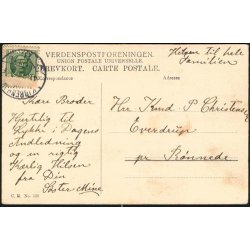 VERDENSPOSTFORENINGEN.
UNION POSTALE UNIVERSELLE.
BREVKORT. CARTE POSTALE.
Hilsen til hele
Familien
Correspondance
Adresse
Kære Broder
Hjertelig til
Lykke i Dagens
Andledning
og en rigtig
Kærlig Hilsen
fra Din
Søster Mine
Hr Knud P Christensen
Everdrup
pr Rønnede